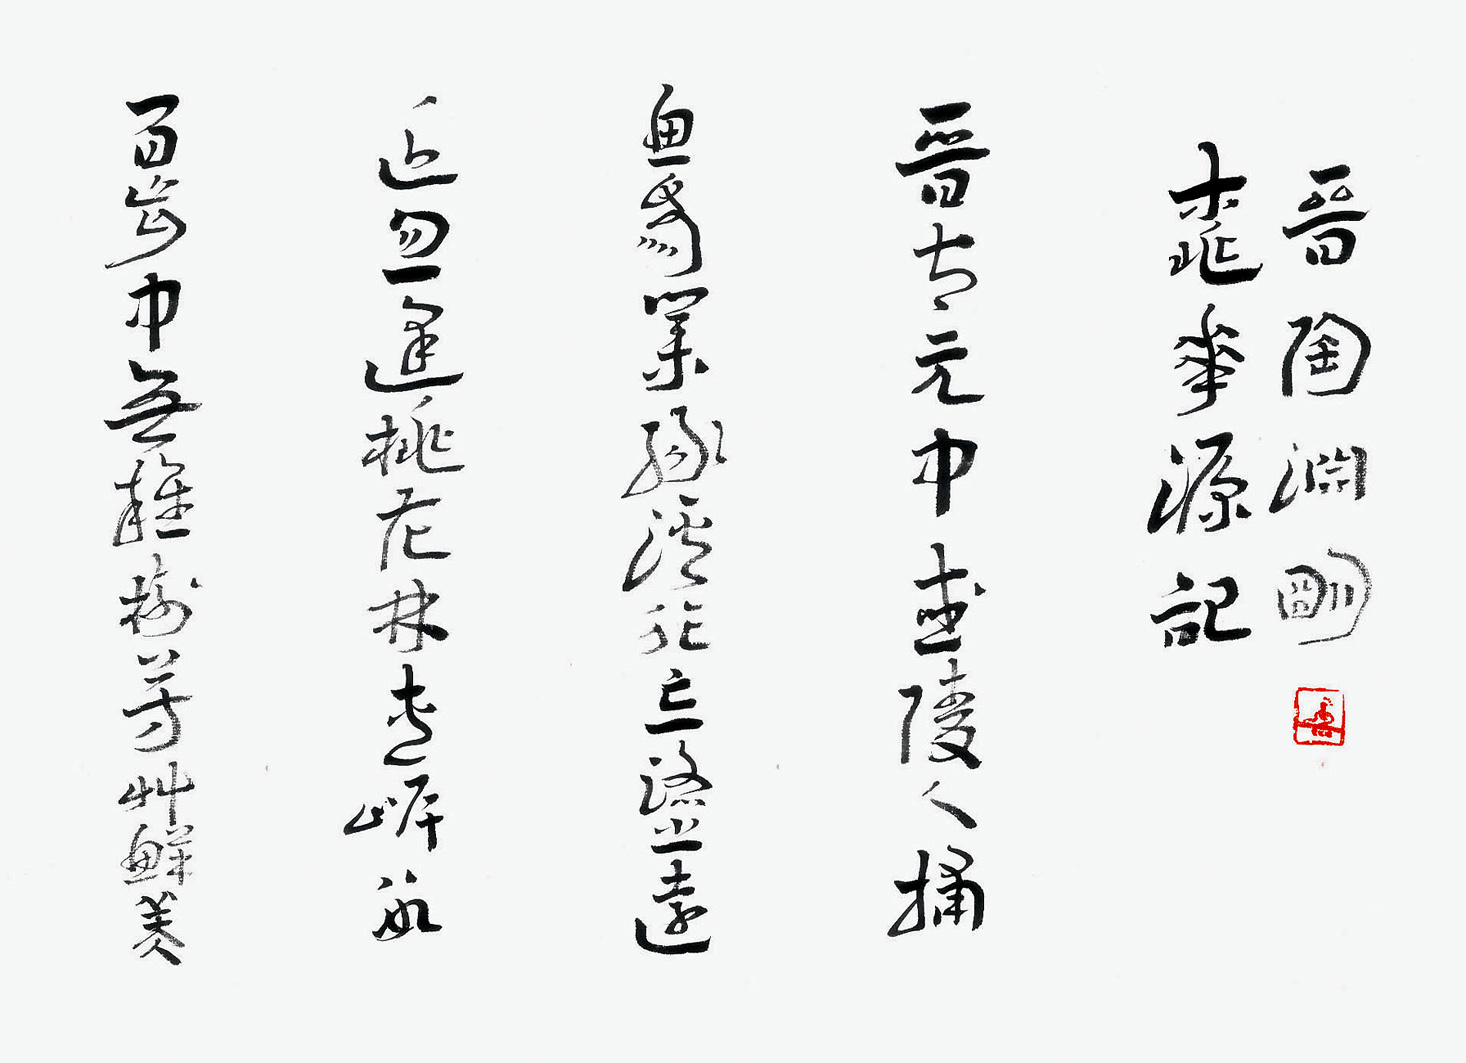 晉陶淵明
桃華源記
晉太元中武陵人捕
魚為業緣溪行忘路之遠
近忽逢桃花林夾岸數
百步中無雜樹芳艸鮮美